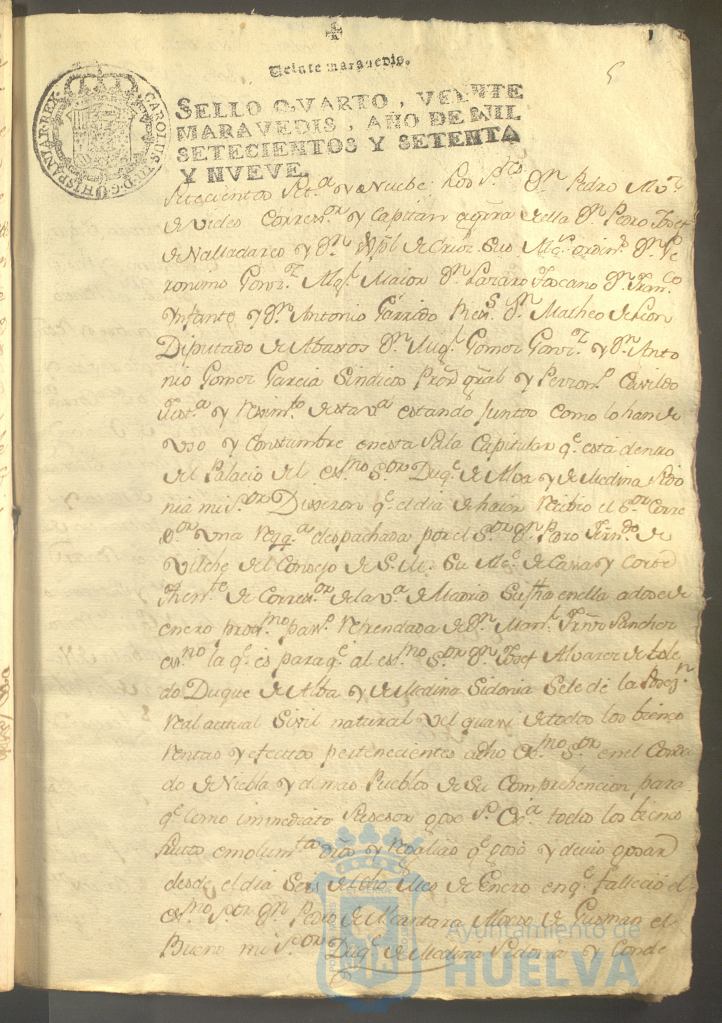 Veinte maravedis.
5
CAROLUS III D G HISPANIAR REX
SELLO QVARTO, VEINTE
MARAVEDIS, AÑO DE MIL
SETECIENTOS Y SETENTA
Y NVEVE.
Setecientos Set.ª y Nuebe, Los S.res D.n Pedro
de Correx.or y Capitan aguerra de ella D.n Pedro Josef
de Valladares y D.n de su Mg.s ordin.s D.n Ge
ronimo Gonz.z Alg.l Maior D.n Lazaro Toscano D.n Fran.co
Ynfante y D.n Antonio Garrido Rex.s D.n Matheo de Leon
Diputado de Abastos D.n Mig.l Gomez Gonz.z y D.n Anto
nio Gomez Garcia Sindicos Pror gral y Person.o Cavildo
Just.ª y Rexim.to de esta v.ª estando juntos como lo han de
uso y Constumbre en esta Sala Capitular q.e está dentro
del Palacio del ex.mo S.or Duq.e de Alva y de Medina Sido
nia mi s.or Dixeron q.e el dia de haier Recibio el S.or Corre
x.or una Req.ª despachada por el S.or D.n Pedro Fern.do de
Vilche del Consejo de S.M. Su Alc.e de Casa y Corte
Then.te de Correx.or de la v.ª de Madrid Su fha en ella a doze de
enero prox.mo pas.o Refrendada de D.n Man.l Sanchez
es.no la q.e es para q.e al ex.mo S.or D.n Josef Alvarez de tole
do Duque de Alba y de Medina Sidonia Se le dé la Poses.n
Real actual Sivil natural vel quasi de todos los bienes
Rentas y efectos pertenecientes a dho Ex.mo S.or en el Conda
do de Niebla y demas Pueblos de Su Comprehencion para
q.e como immediato Subsesor goze S. Ex.ª todos los bienes
frutos emolum.tos dros y regalias q.e gozó y devió gozar
desde el dia Seis de dho Mes de Enero en q.e fallecio el
Ex.mo S.or D.n Pedro de Alcantara Alonso de Gusman el
Bueno mi S.or Duq.e de Medina Sidonia y Conde
Ayuntamiento de
HUELVA